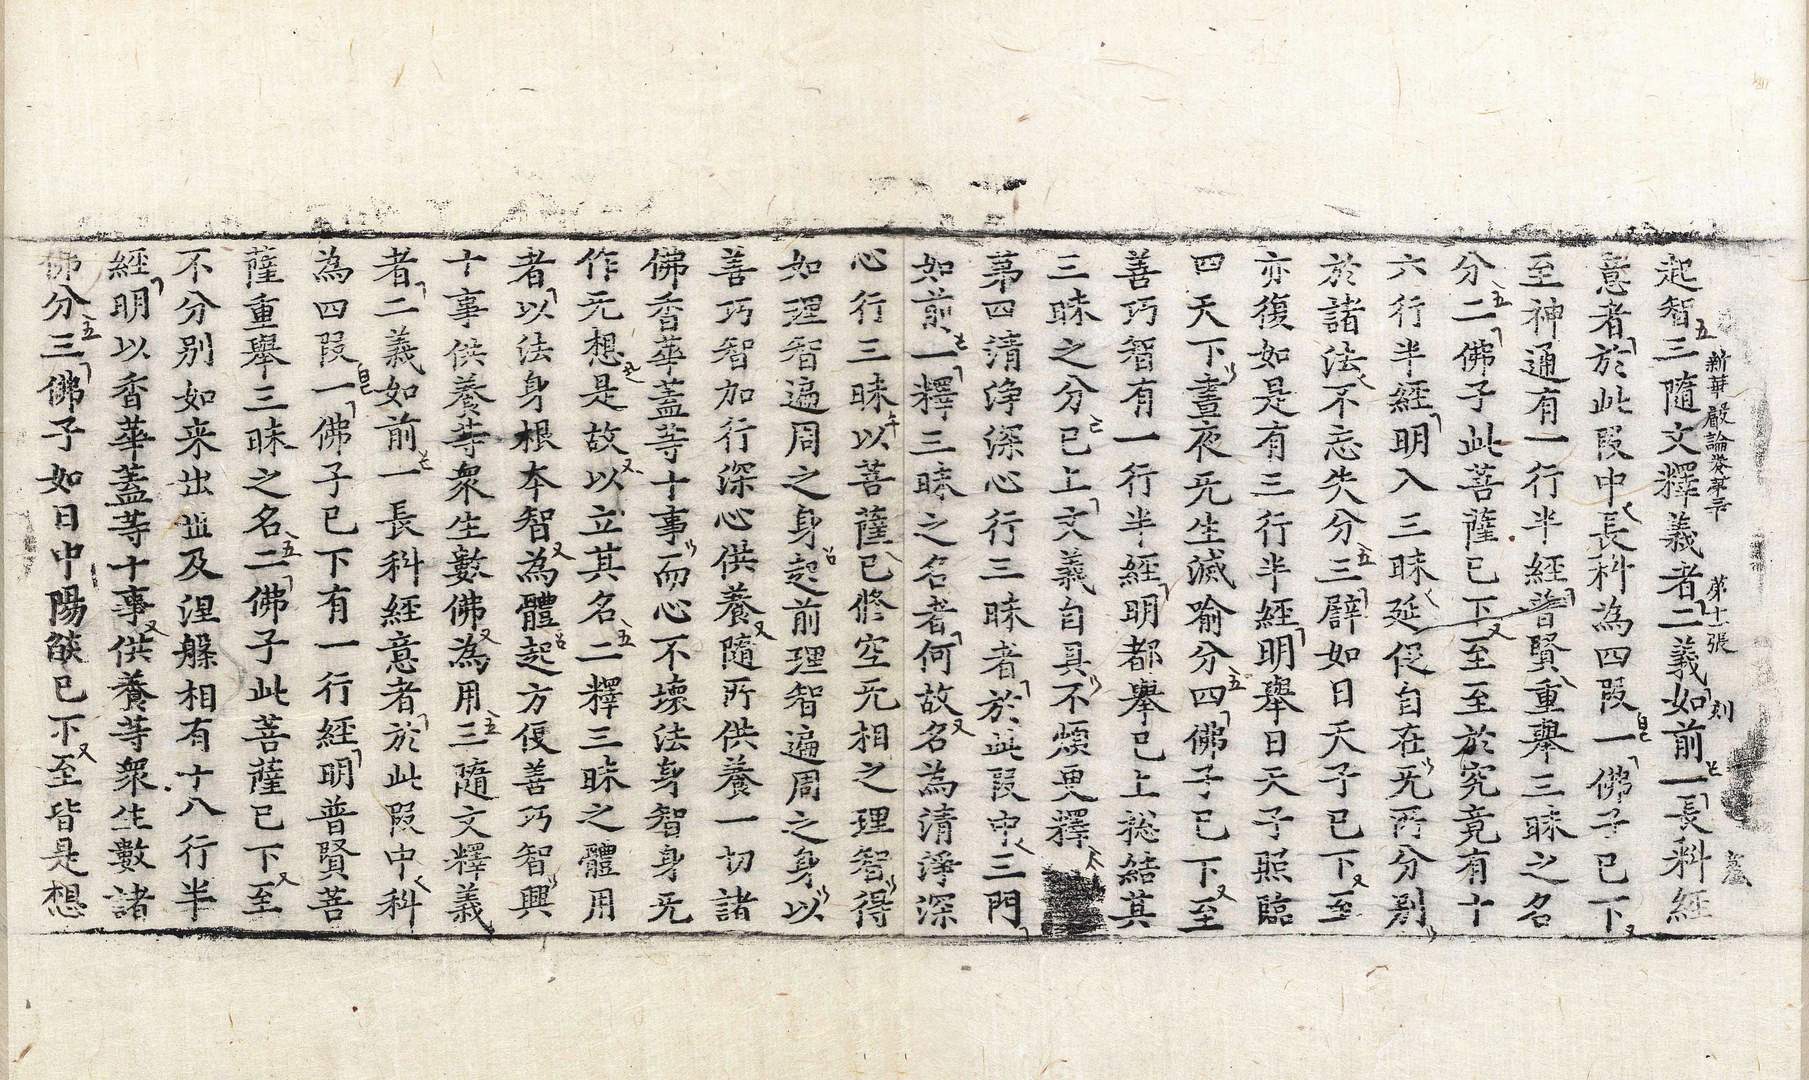 新華嚴論卷第三十 第十一張 刻
起智三隨文釋義者二義如前一長科經
意者於此叚中長科為四叚一佛子已下
至神通有一行半經普賢重舉三昧之名
分二佛子此菩薩已下至至於究竟有十
六行半經明入三昧延促自在无所分別
於諸法不忘失分三譬如日天子已下至
亦復如是有三行半經明舉日天子照臨
四天下晝夜无生滅喻分四佛子已下至
善巧智有一行半經明都舉已上捴結其
三昧之分已上文義自具不煩更釋
苐四清淨深心行三昧者於此叚中三門
如前一釋三昧之名者何故名為清淨深
心行三昧以菩薩已修空无相之理智得
如理智遍周之身起前理智遍周之身以
善巧智加行深心供養隨所供養一切諸
佛香華蓋等十事而心不壞法身智身无
作无想是故以立其名二釋三昧之體用
者以法身根本智為體起方便善巧智興
十事供養等衆生數佛為用三隨文釋義
者二義如前一長科經意者於此叚中科
為四叚一佛子已下有一行經明普賢菩
薩重舉三昧之名二佛子此菩薩已下至
不分別如来出丗及涅槃相有十八行半
經明以香華蓋等十事供養等衆生數諸
佛分三佛子如日中陽燄已下至皆是想